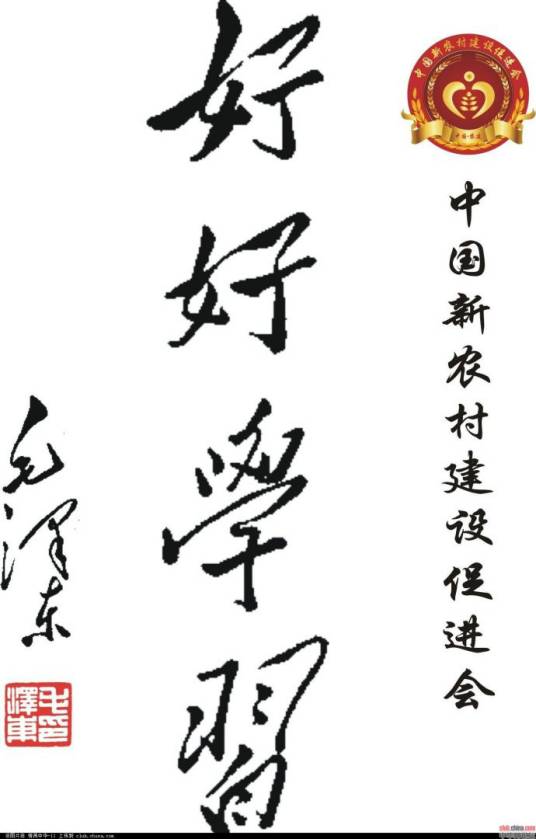 中国新农村建设促进会
中国新农村建设促进会
好好學習
毛泽东
club.china.com